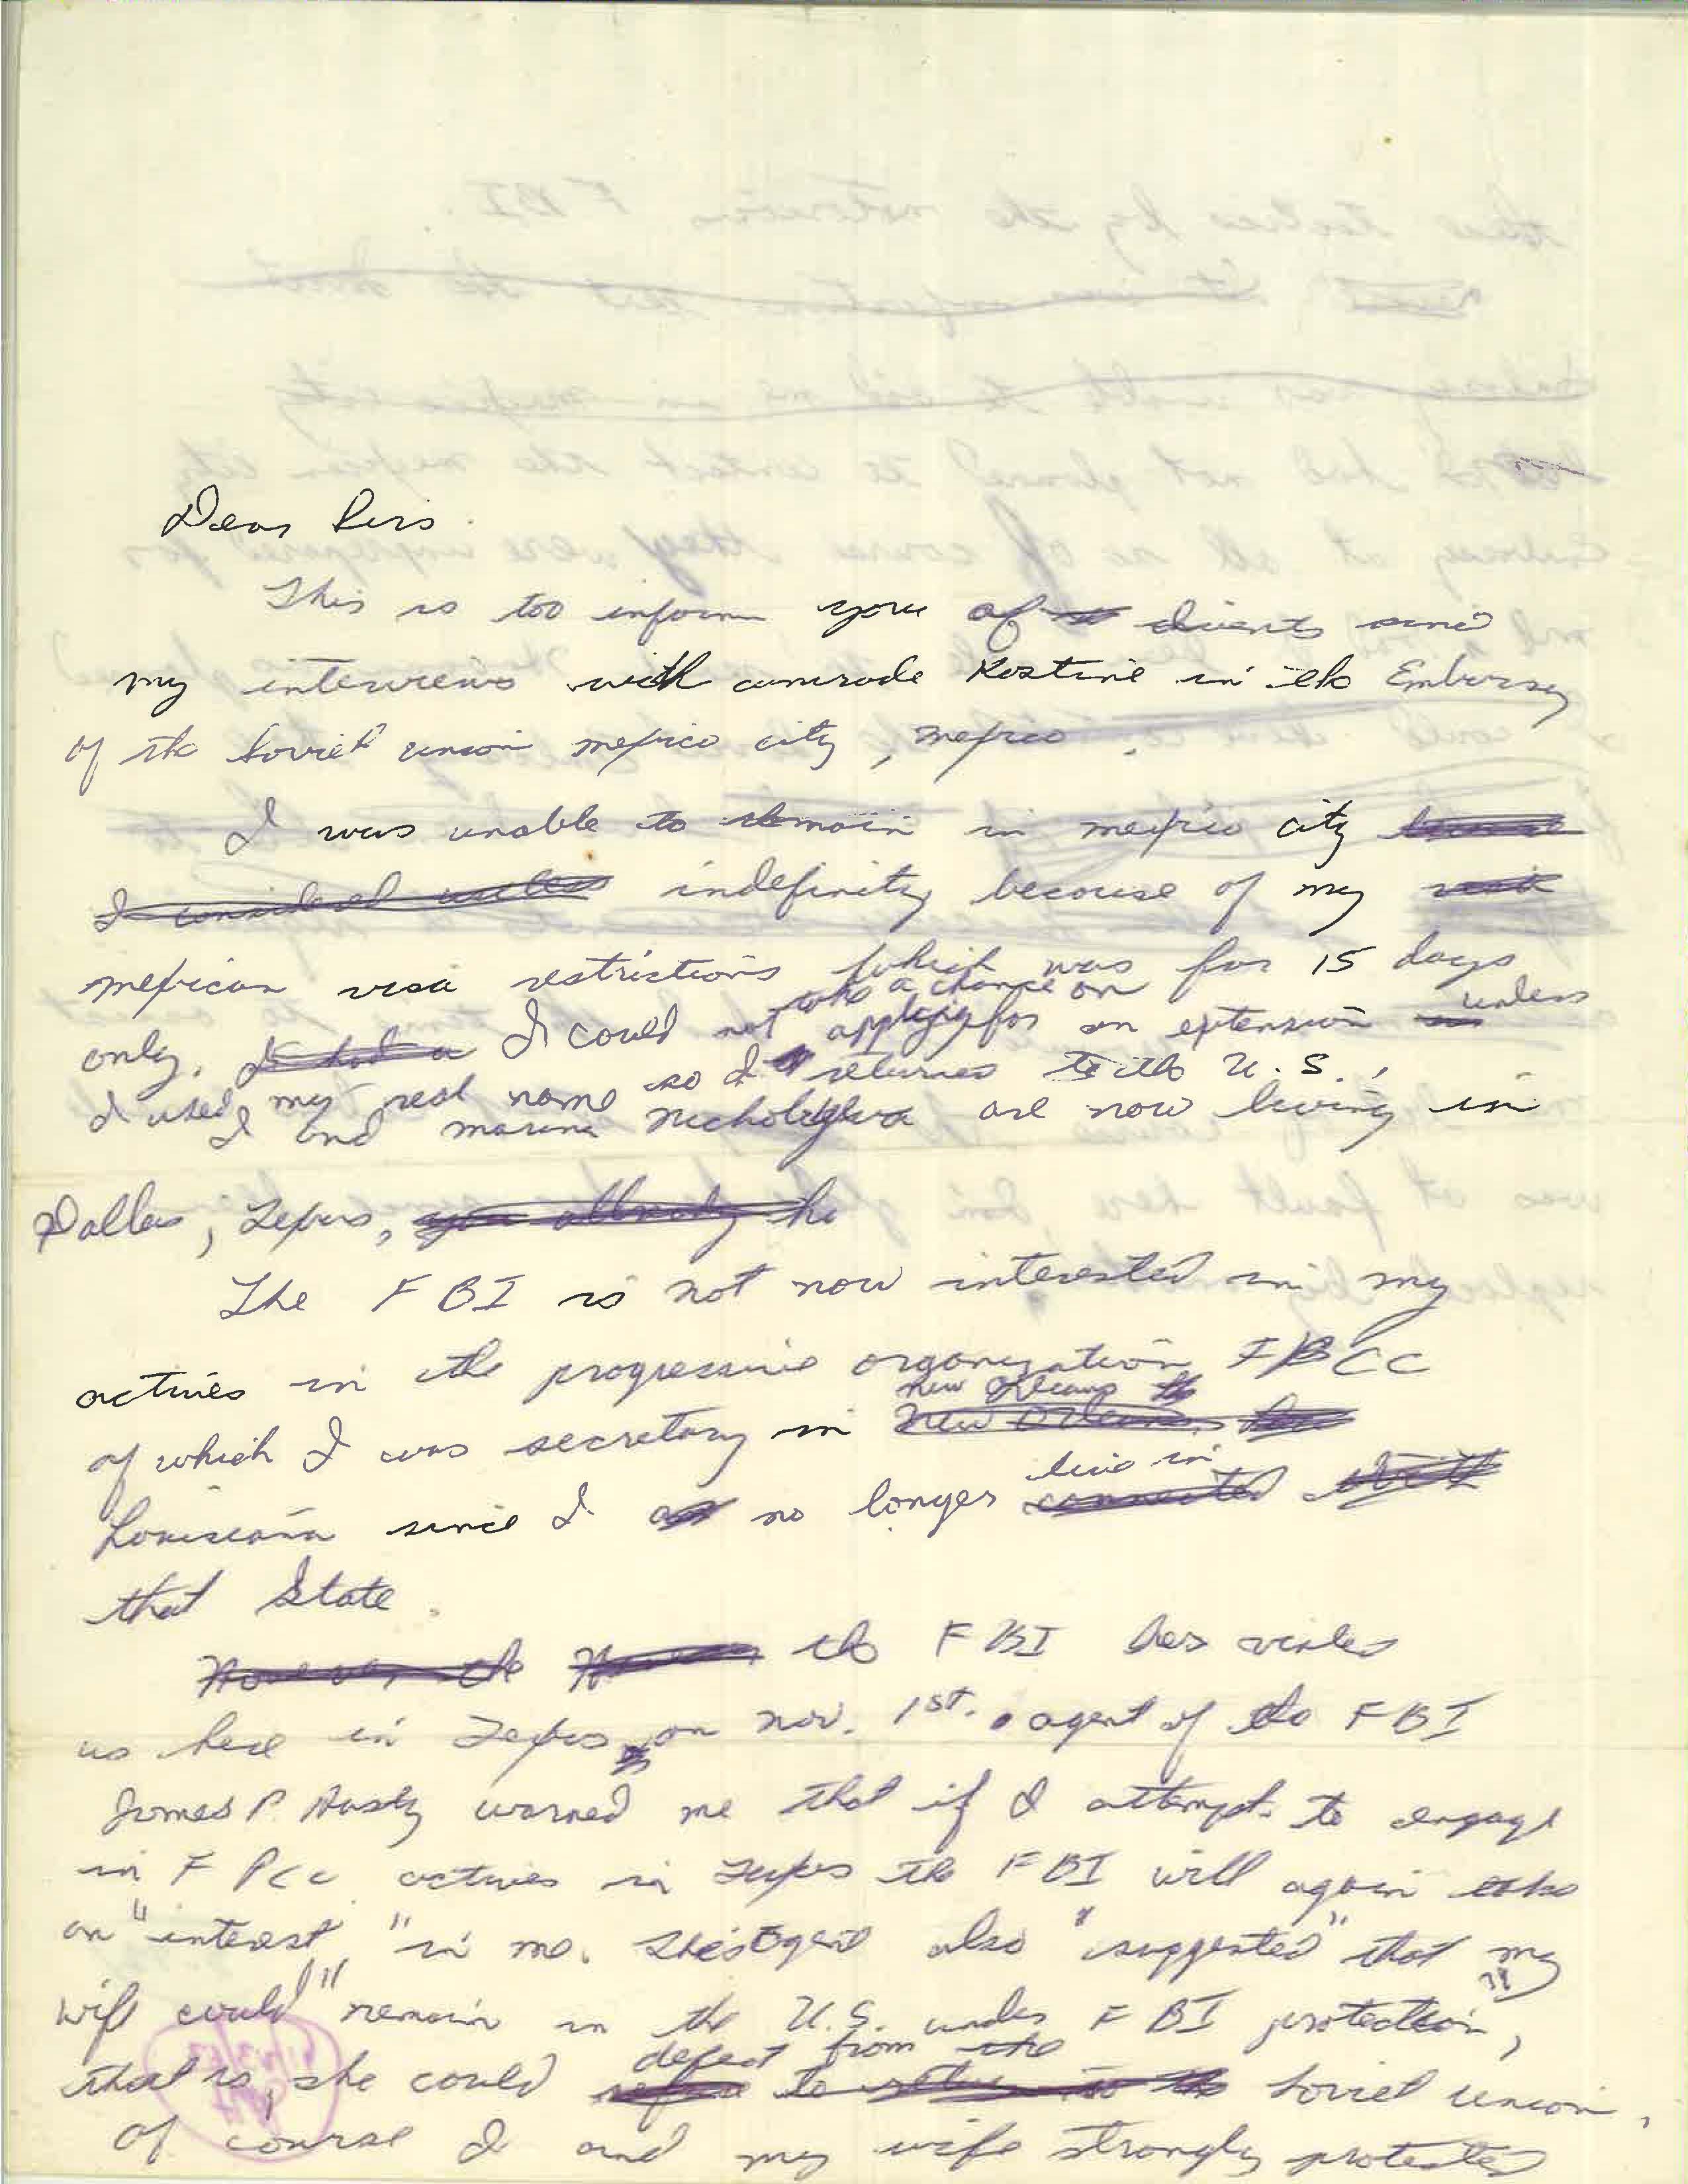 Dear Sirs
This is too inform you of events since
my interviews with comrade Kostine in the Embassy
of the Soviet union mexico city, mexico.
I was unable to remain in mexico city because
I considered useless indefinity because of my
mexican visa restrictions which was for 15 days
only. I had a I could not take a chance on applying for an extension unless
I used my real name so I returned to the U.S.,
I and marina nicholeyeva are now living in
Dallas, Texas, you allready ha
The FBI is not now interested in my
activies in the progressive organization FPCC
of which I was secretary in New Orleans, new Orleans
Louisiana since I no longer connected with live in
that State.
However, the the FBI has visited
us here in Texas on nov. 1st. agent of the FBI
James P. Hasty warned me that if I attempt to engage
in F PCC activies in Texas the FBI will again take
an "interest" in me. This agent also "suggested" that my
wife could "remain in the U.S. under FBI protection",
that is, she could refuse to return to the defect from the Soviet union.
Of course I and my wife strongly protested